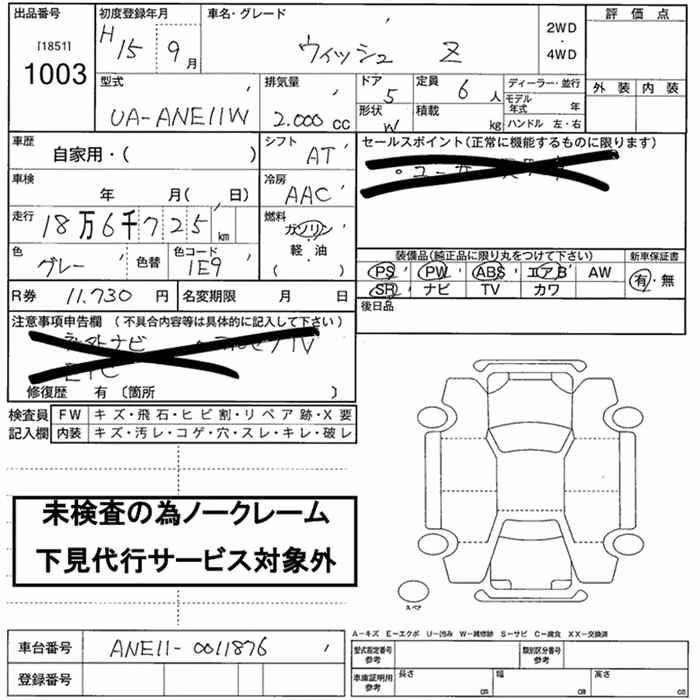 出品番号 初度登録年月 車名・グレード 評価点
[1851] H15 9月 ウィッシュ Z 2WD・4WD
1003 外装 内装
型式 排気量 ドア 定員 ディーラー・並行
UA-ANE11W 2.000cc 5 6人 モデル年式 年
形状 積載 ハンドル 左・右
W kg
車歴 シフト セールスポイント(正常に機能するものに限ります)
自家用・( ) AT
車検 冷房
年 月( 日) AAC
走行 燃料
18万6千725km ガソリン・軽・油・( )
色 色替 色コード 装備品(純正品に限り丸をつけて下さい) 新車保証書
グレー 1E9 PS PW ABS エアB AW 有・無
SR ナビ TV カワ
R券 11.730円 名変期限 月 日 後日品
注意事項申告欄 (不具合内容等は具体的に記入して下さい)
ナビ TV
ETC
修復歴 有 〔箇所 〕
検査員 FW キズ・飛石・ヒビ割・リペア跡・X要
記入欄 内装 キズ・汚レ・コゲ・穴・スレ・キレ・破レ
未検査の為ノークレーム
下見代行サービス対象外
スペア
A-キズ E-エクボ U-凹み W-補修跡 S-サビ C-腐食 XX-交換済
車台番号 ANE11-0011876 型式指定番号参考 類別区分番号参考
登録番号 車庫証明用参考 長さ cm 幅 cm 高さ cm